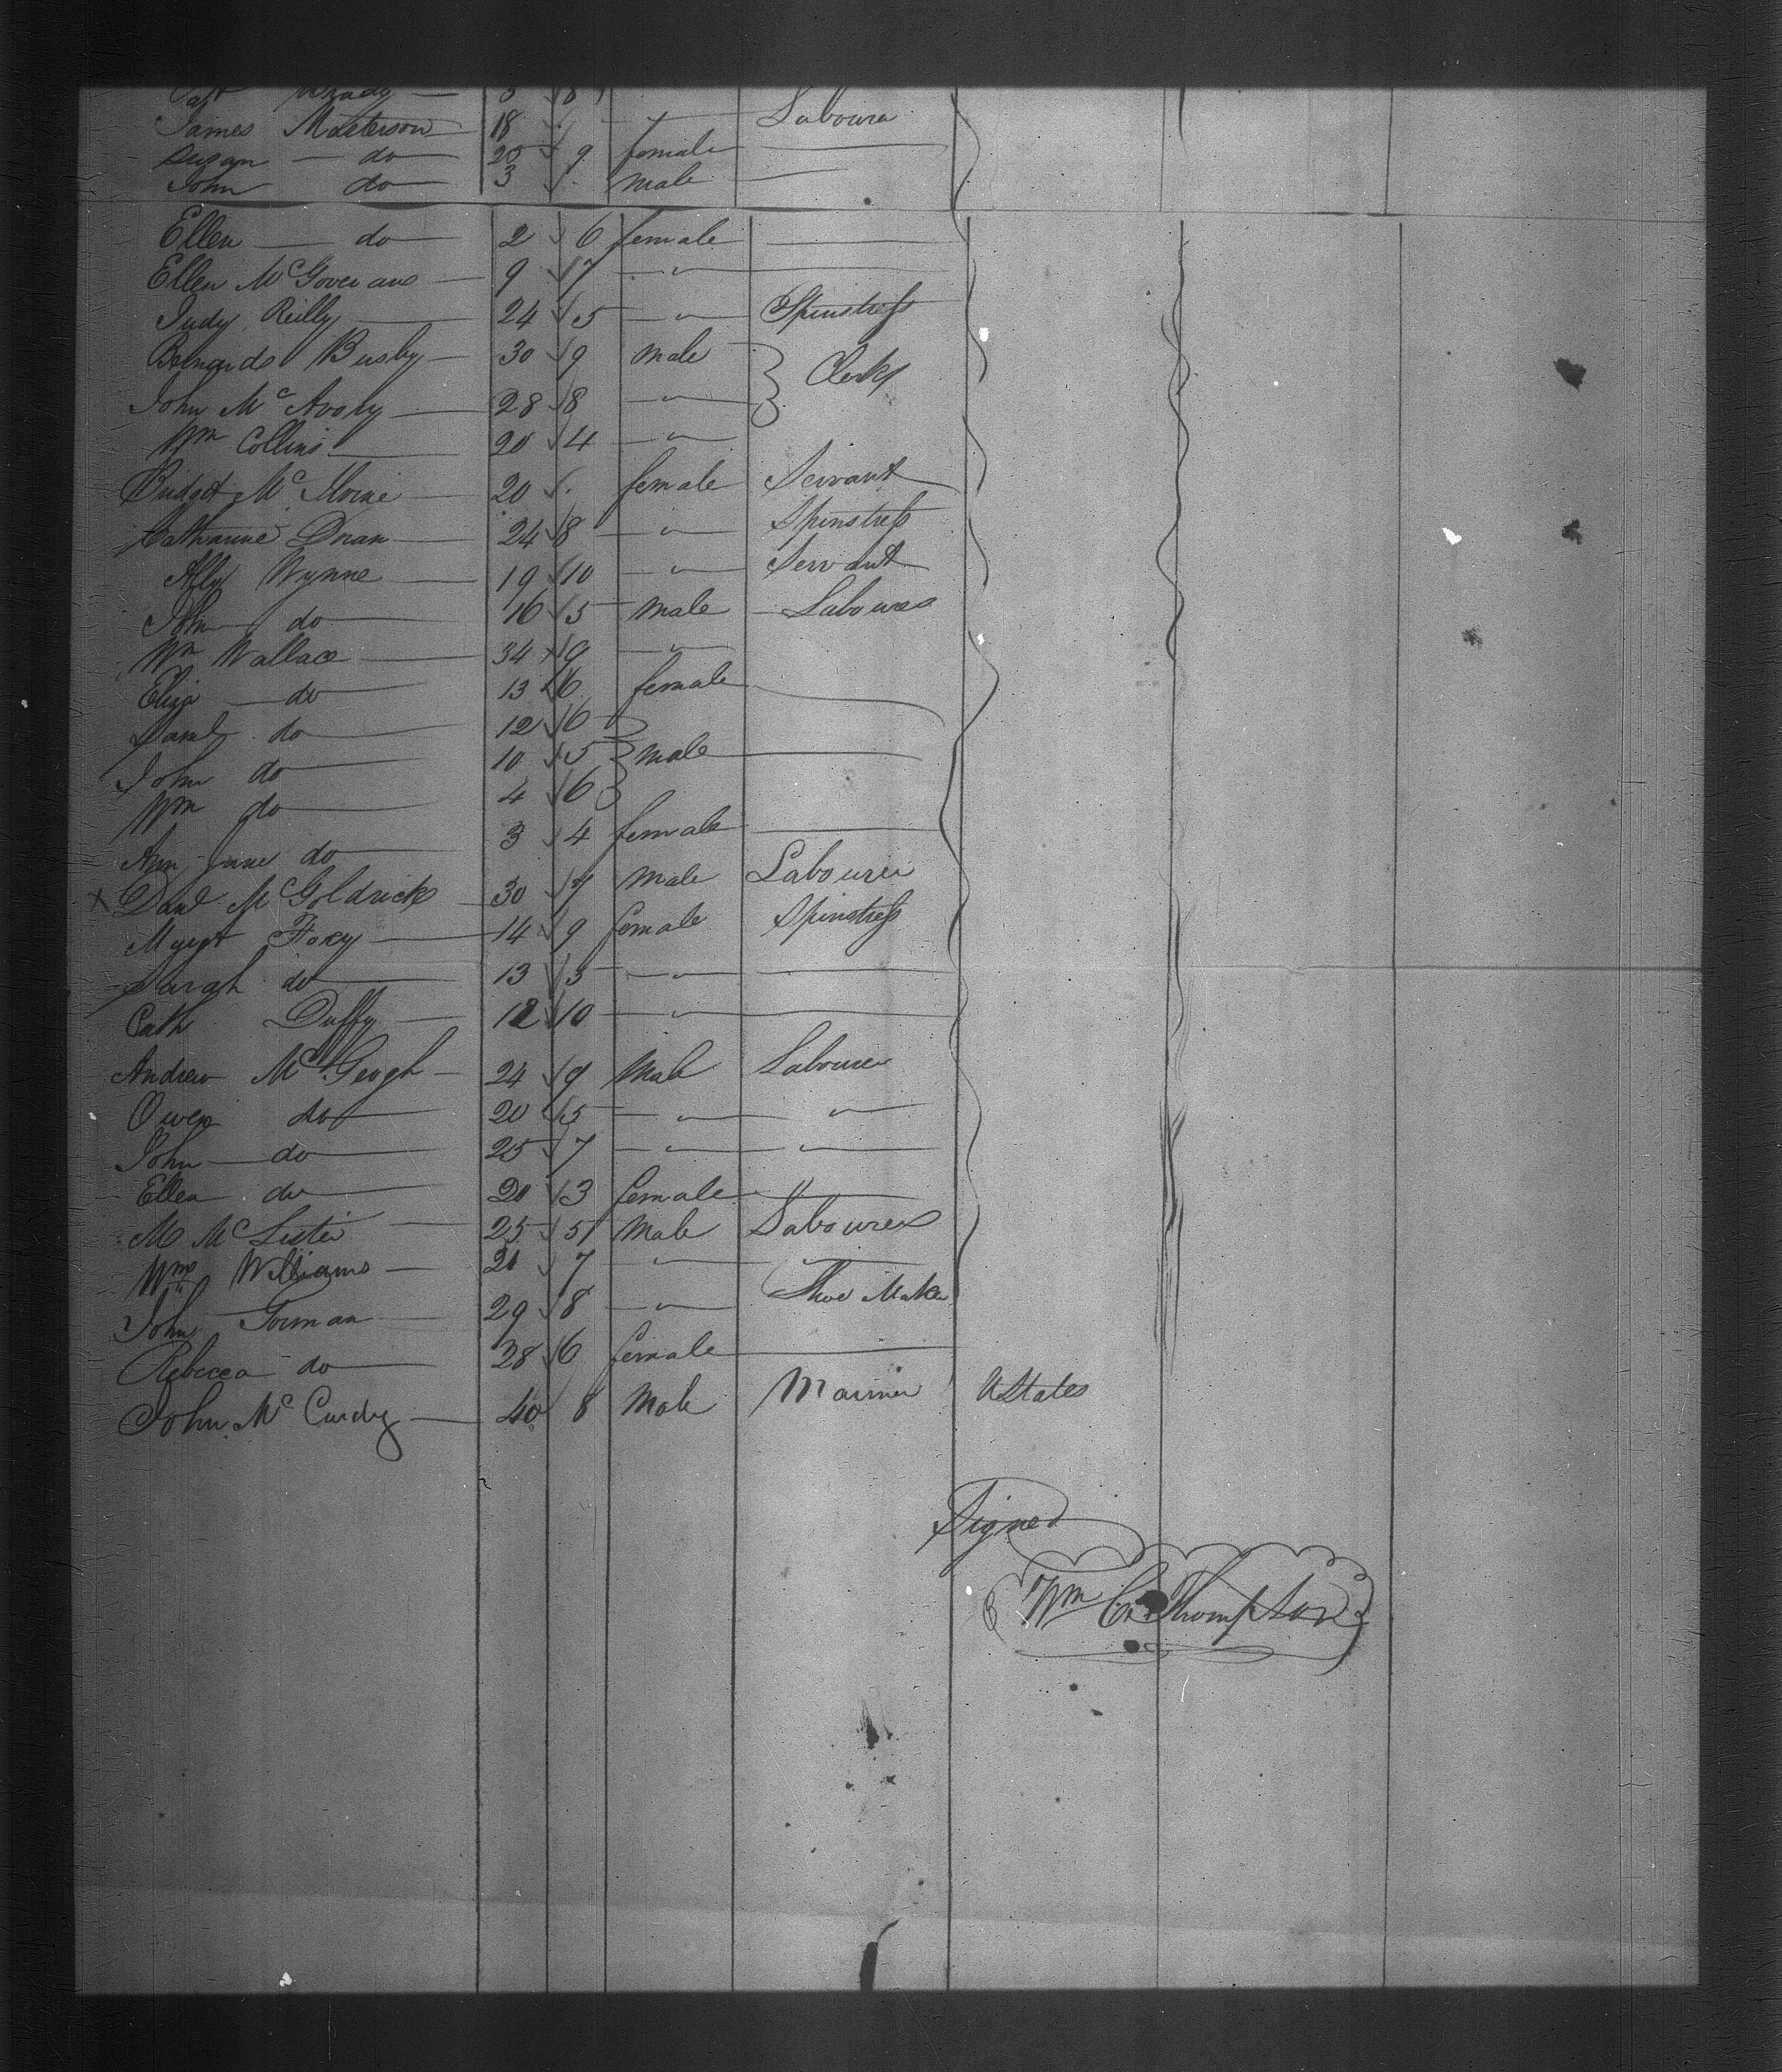 Brady 8
James Masterson 18 Laboure
Susan do 25 9 female
John do 3 male
Ellen do 2 6 female
Ellen McGoverans 9 7 "
Judy Reilly 24 5 " Spinstress
Bernard Busby 30 9 male
Clerks
John McAvoy 28 8 "
Wm Collins 20 4 "
Bridget Mc 20 female Servant
Catharine Doran 24 8 " Spinstress
Ally Wynne 19 10 " Servant
John do 16 5 male Labourer
Wm Wallace 34 9 "
Eliza do 13 6 female
Saml do 12 6
John do 10 5 male
Wm do 4 6
Ann Jane do 3 4 female
x Danl McGoldrick 30 7 male Labourer
Mgret Foxy 14 9 female Spinstress
Sarah do 13 3 "
Cath Duffy 12 10 "
Andrew McGeogh 24 9 Male Labourer
Owen do 20 5 " "
John do 25 7 " "
Ellen do 20 3 female "
M McLister 25 5 Male Labourer
Wm Williams 21 7 " "
John Gorman 29 8 " Shoe Maker
Rebecca do 28 6 female
John McCurdy 40 8 Male Mariner UStates
Signed
Wm C. Thompson